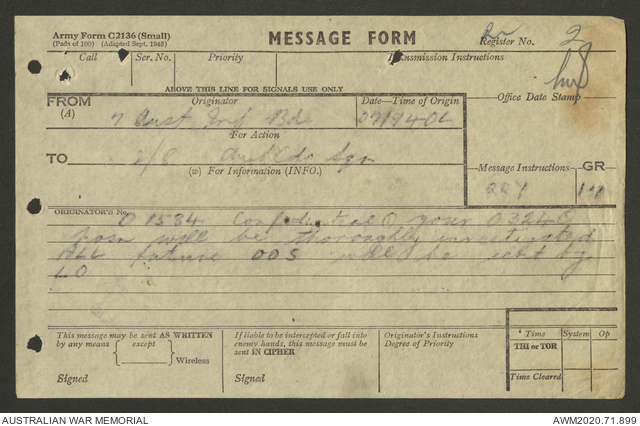 Army Form C2136 (Small)
(Pads of 100) (Adapted Sept. 1943)
MESSAGE FORM
Register No. 2
Call Ser. No. Priority Transmission Instructions
ABOVE THIS LINE FOR SIGNALS USE ONLY
FROM Originator Date—Time of Origin Office Date Stamp
(A) 7 Aust Inf Bde
For Action
TO 2/8 Cdo Sqn
(w) For Information (INFO.)
Message Instructions GR
ORIGINATOR'S No.
O 1584 Confidential your O324
posn will be thoroughly investigated
ALL future OOS will be sent by
LO
This message may be sent AS WRITTEN
by any means except
Wireless
Signed
If liable to be intercepted or fall into
enemy hands, this message must be
sent IN CIPHER
Signed
Originator's Instructions
Degree of Priority
Time System Op
THI or TOR
Time Cleared
AUSTRALIAN WAR MEMORIAL AWM2020.71.899